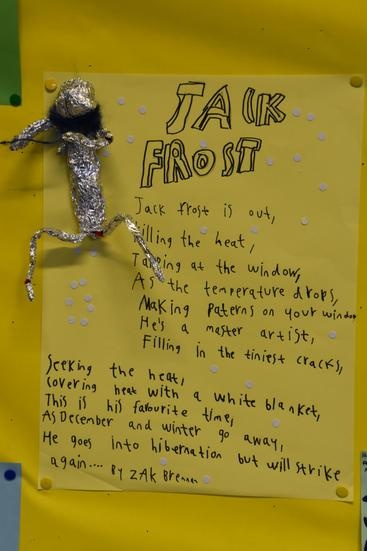 JACK
FROST
Jack frost is out,
illing the heat,
Tapping at the window,
As the temperature drops,
Making paterns on your window
He's a master artist,
Filling in the tiniest cracks,
Seeking the heat,
covering heat with a white blanket,
This is his favourite time,
As December and winter go away,
He goes into hibernation but will strike
again.... BY ZAk Brennan